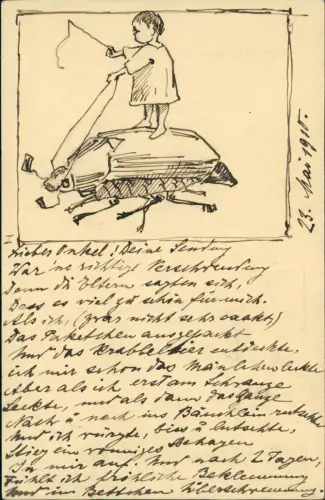 23. Mai 1910.
I
Lieber Onkel! Deine Sendung
War 'ne richtige Verschwendung
Denn die Eltern sagten sich,
Dass es viel zu schön für mich.
Als ich, (zwar nicht sehr exakt)
Das Paketchen ausgepackt
Und das Krabbeltier entdeckte,
ich mir schon das Mäulchen leckte
Aber als ich erst am Schwanze
Leckte, und als dann das ganze
Nach u nach ins Bäuchlein rutschte
Und ich würgte, biss u lutschte,
Stieg ein wonniges Behagen
In mir auf. Und nach 2 Tagen,
Fühlt ich fröhliche Beklemmung
Und im Bettchen Überschwemmung.